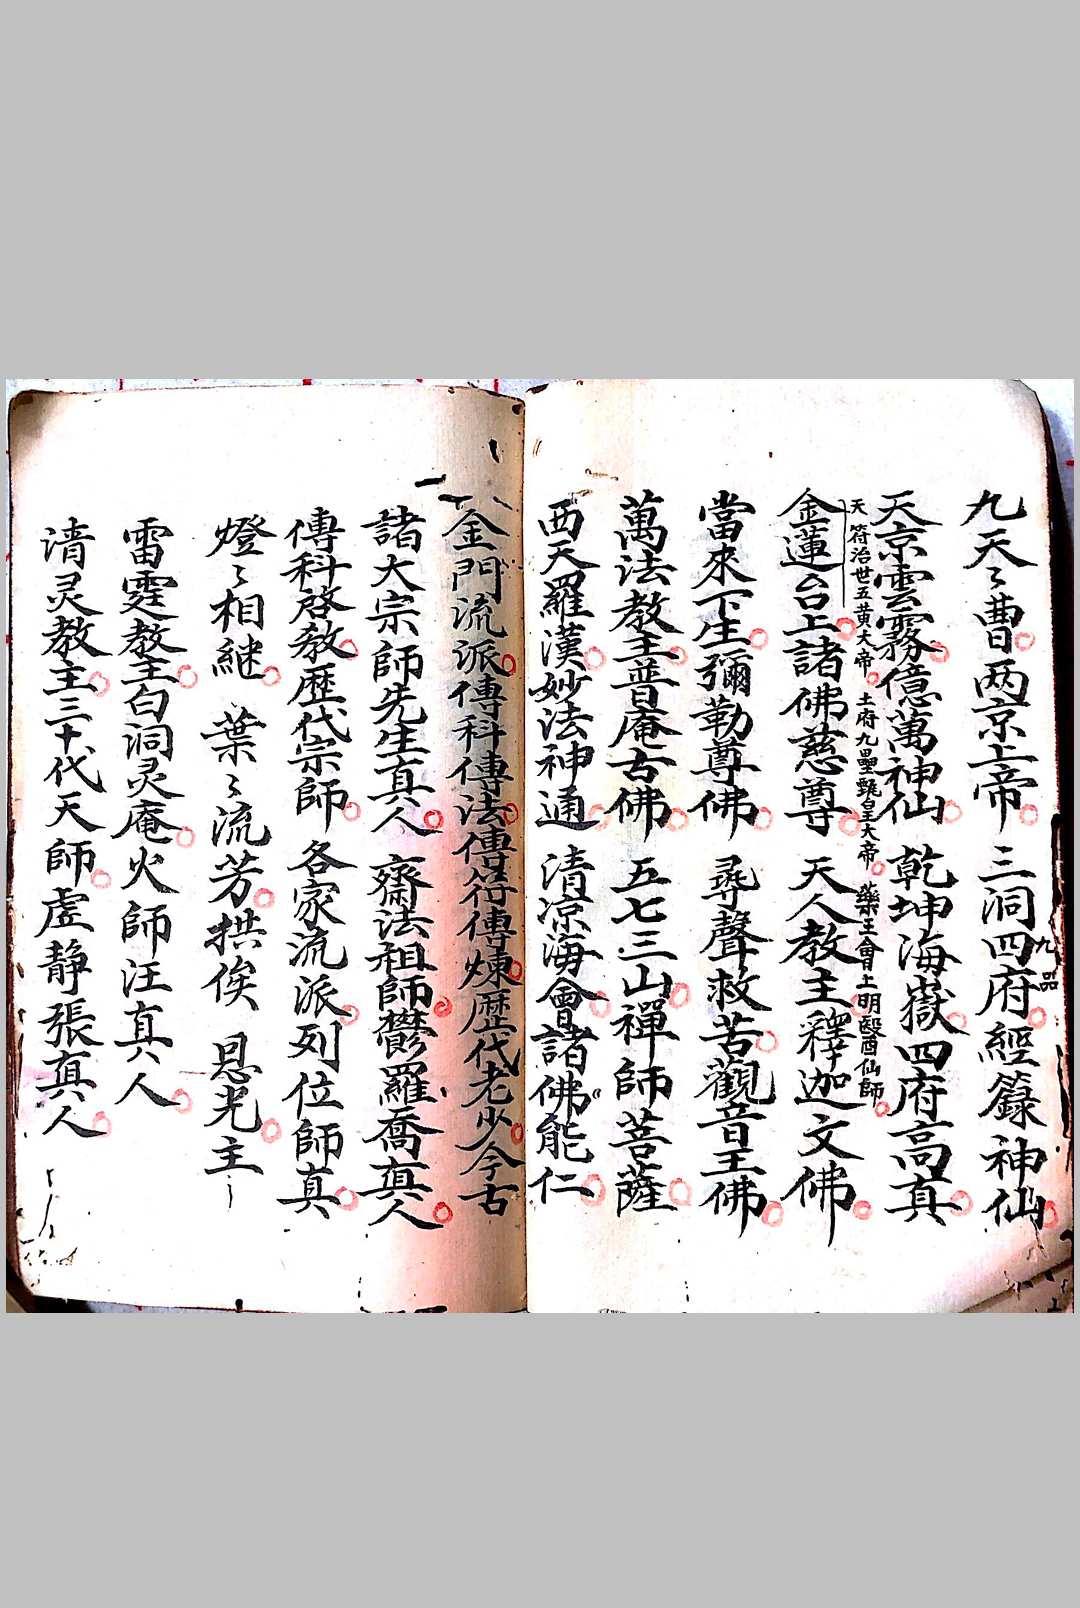 九天〻曹两京上帝三洞四府經籙神仙
九品
天京雲霧億萬神仙乾坤海嶽四府高真
天符治世五黄大帝土府九壘甄皇大帝藥王會上明醫仙師
金蓮台上諸佛慈尊天人教主釋迦文佛
當來下生彌勒尊佛尋聲救苦觀音王佛
萬法教主普庵古佛五七三山禪師菩薩
西天羅漢妙法神通清凉海會諸佛能仁
金門流派傳科傳法傳符傳煉歷代老少今古
諸大宗師先生真人齋法祖師鬱羅喬真人
傳科啓教歷代宗師各家流派列位師真
燈〻相継葉〻流芳拱俟恩光主
雷霆教主白洞灵庵火師汪真人
清灵教主三十代天師虚靜張真人